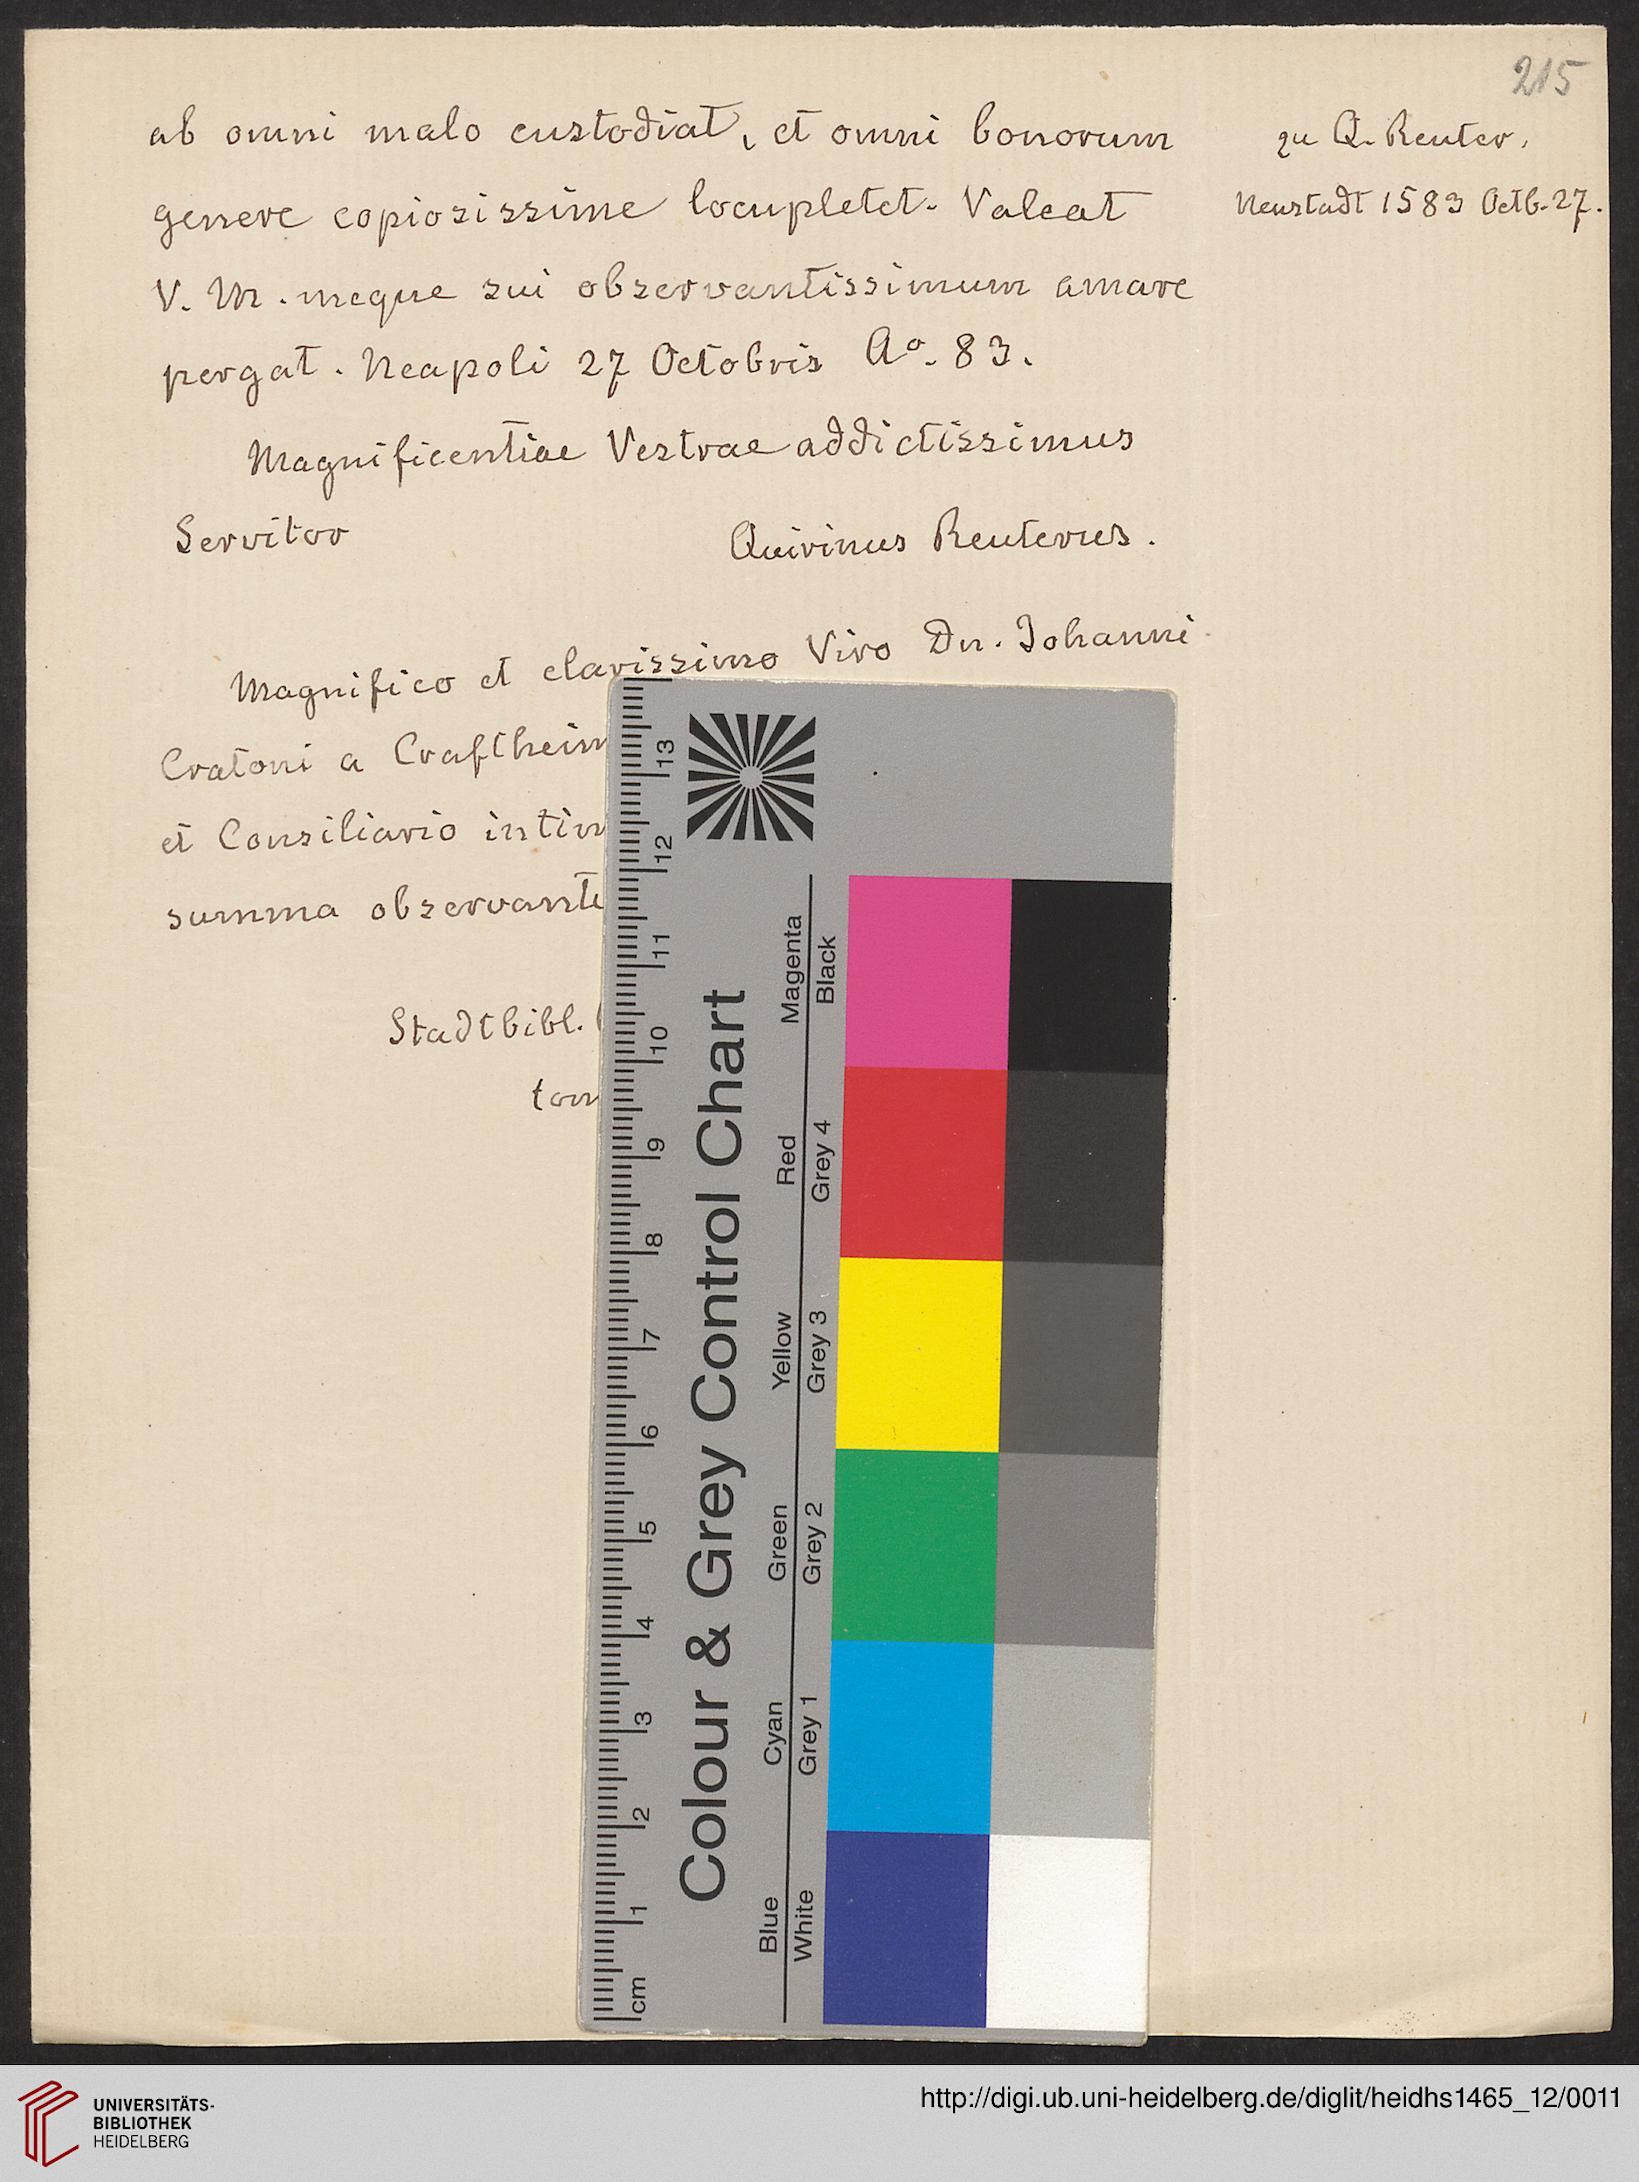 215
ab omni malo custodiat, et omni bonorum
genere copiosissime locupletet. Valeat
V. M. meque sui observantissimum amare
pergat. Neapoli 27 Octobris Ao. 83.
Magnificentiae Vestrae addictissimus
Servitor Quirinus Reuterus.
zu Q. Reuter,
Neustadt 1583 Octb. 27.
Magnifico et clarissimo Viro Dn. Johanni
Cratoni a Craftheim
et Consiliario intim
summa observanti
Stadtbibl.
tom
13
12
11
10
9
8
7
6
5
4
3
2
1
cm
Colour & Grey Control Chart
Magenta
Black
Red
Grey 4
Yellow
Grey 3
Green
Grey 2
Cyan
Grey 1
Blue
White
UNIVERSITÄTS-
BIBLIOTHEK
HEIDELBERG
http://digi.ub.uni-heidelberg.de/diglit/heidhs1465_12/0011